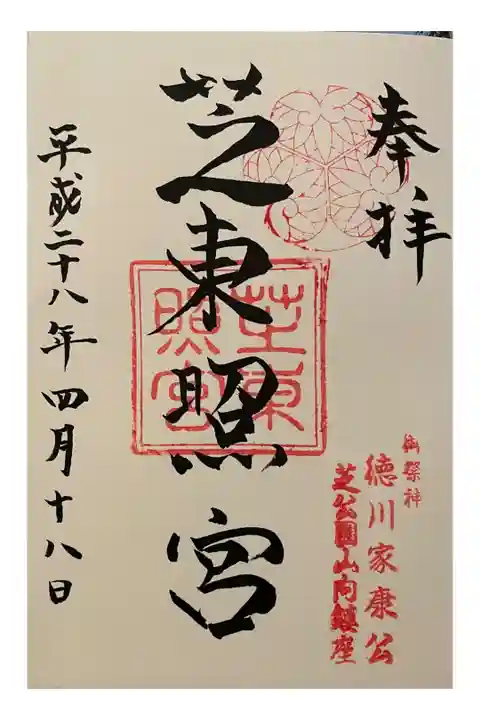 奉拝
御祭神
徳川家康公
芝公園山向鎮座
芝東照宮
芝東
照宮
平成二十八年四月十八日